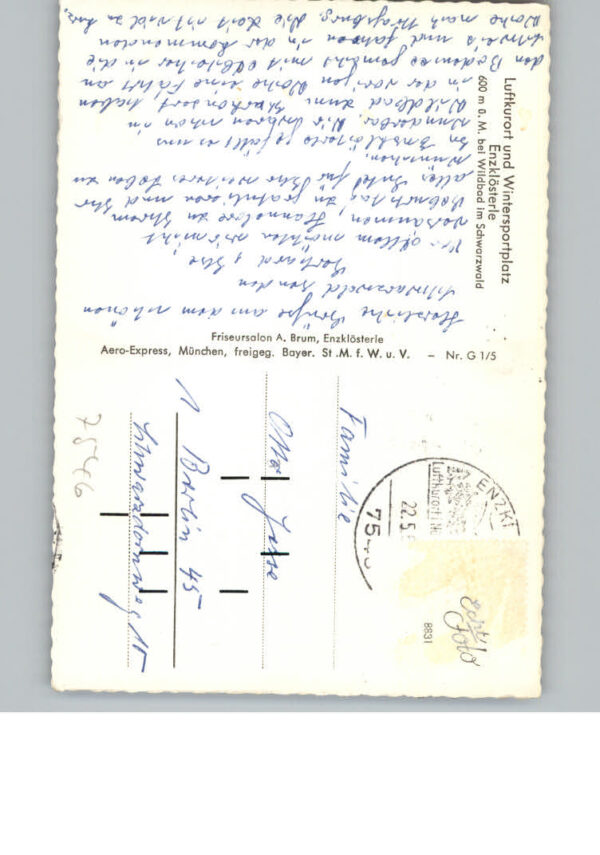 Luftkurort und Wintersportplatz
Enzklösterle
600 m ü. M. bei Wildbad im Schwarzwald
Herzliche Grüße aus dem schönen
Schwarzwald senden
Gerhard &
Vor allem möchten wir nicht
versäumen, Hannelore zu Ihrem
Geburtstag zu gratulieren und Ihr
alles Gute für Ihr weiteres Leben zu
wünschen.
In Enzklösterle gefällt es uns
wunderbar. Wir haben schon in
Wildbad zum Kurkonzert
in der vorigen Woche eine Fahrt an
den Bodensee gemacht mit in die
Schweiz und fahren in der kommenden
Woche nach Die Zeit ist viel zu kurz.
Friseursalon A. Brum, Enzklösterle
Aero-Express, München, freigeg. Bayer. St.M. f. W. u. V. – Nr. G 1/5
ENZKL
Luftkurort
22.5.
75
Echt
Foto
8831
Familie
Otto
1 Berlin 45
Schwarzdornweg 15